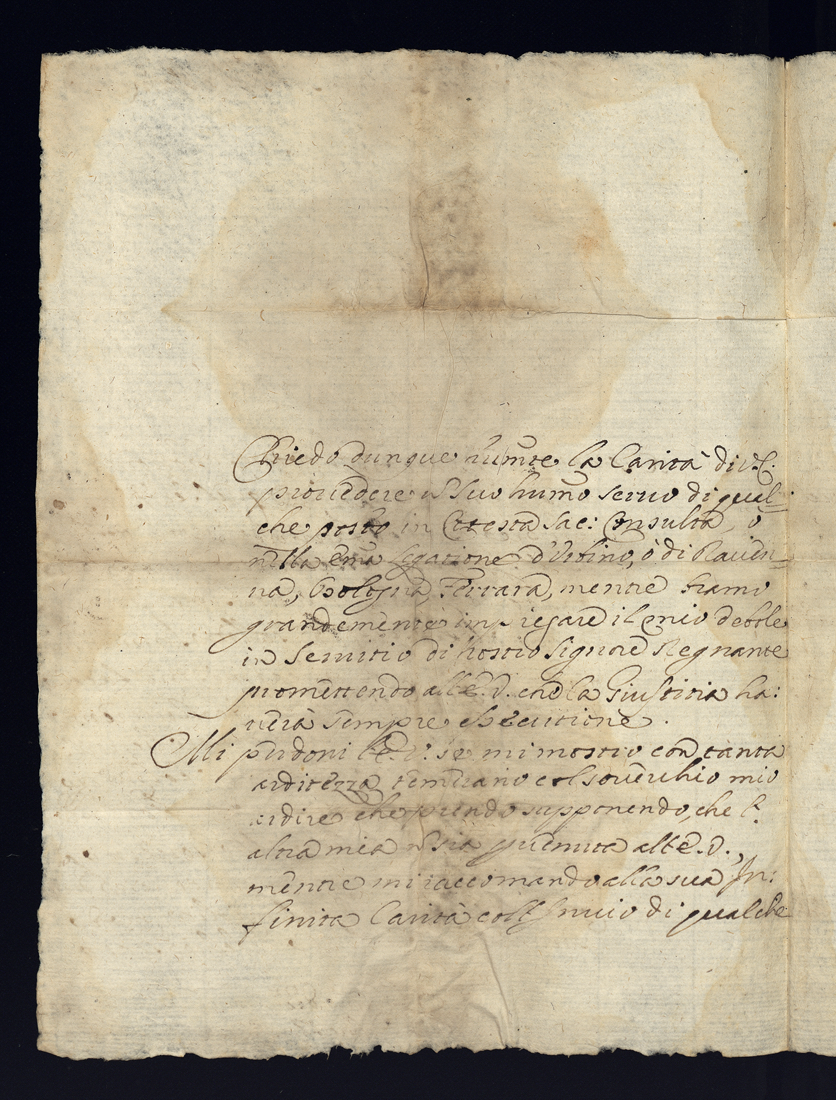 Chiedo dunque humte la Carità di V.E.
provedere il suo humo servo di qual=
che posto in Cotesta Sac: Consulta, ò
nella Legatione d'Urbino, ò di Raven=
na, Bologna, Ferrara, mentre bramo
grandemente impiegare il mio debole
in Servitio di nostro Signore Regnante
promettendo all'E.V. che la Giustitia ha:
verà sempre essecutione.
Mi perdoni l'E.V. se mi mostro con tanta
arditezza, col soverchio mio
ardire che prendo supponendo, che l'
altra mia sia pervenuta all'E.V.,
mentre mi raccomando alla sua In:
finita Carità coll'Invio di qualche